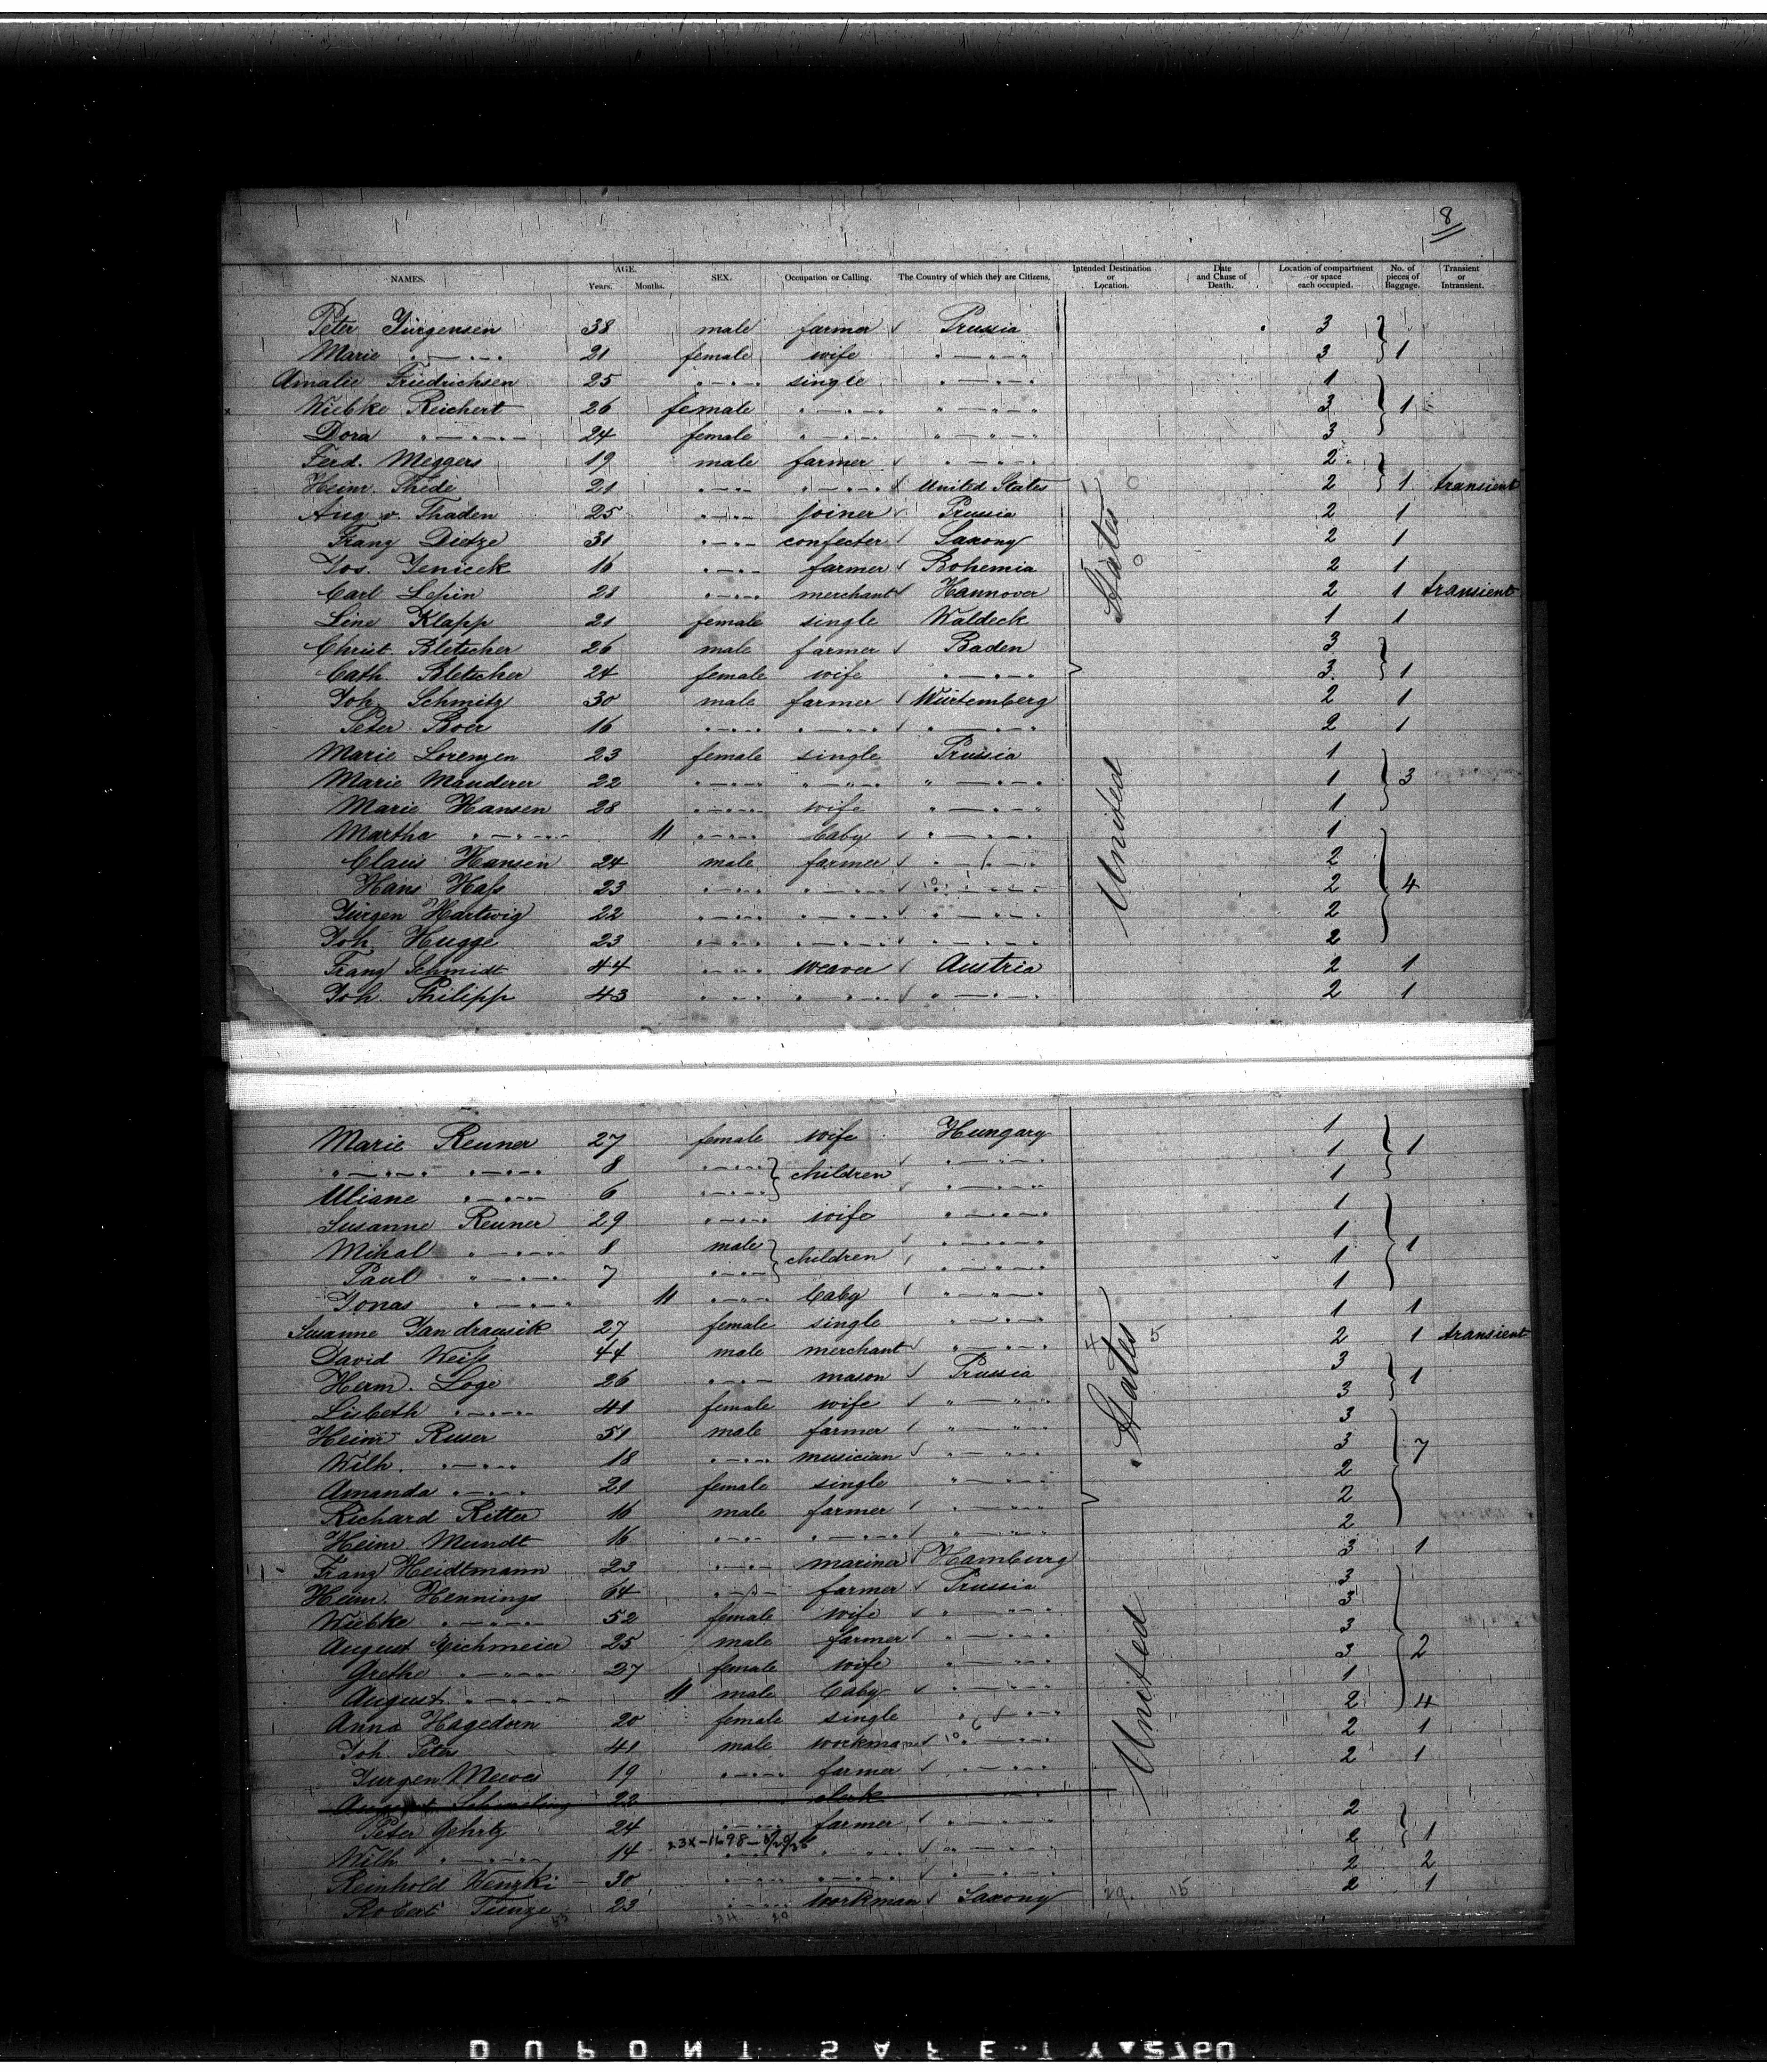 8
NAMES. AGE. Years. Months. SEX. Occupation or Calling. The Country of which they are Citizens. Intended Destination or Location. Date and Cause of Death. Location of compartment or space each occupied. No. of pieces of Baggage. Transient or Intransient.
Peter Jürgensen 38 male farmer Prussia 3
Marie " 21 female wife " 3 1
Amalie Friedrichsen 25 " single " 1
Wiebke Reichert 26 female " " 3 1
Dora " 24 female " " 3
Ferd. Meggers 19 male farmer " 2
Heinr. Thede 21 " " United States 2 1 transient
Aug. v. Thaden 25 " joiner Prussia 2 1
Franz Dietze 31 " confecter Saxony 2 1
Jos. Jenicek 16 " farmer Bohemia 2 1
Carl Lepin 28 " merchant Hannover 2 1 transient
Line Klapp 21 female single Waldeck 1 1
Christ. Bletscher 26 male farmer Baden 3
Cath. Bletscher 24 female wife " 3 1
Joh. Schmitz 30 male farmer Würtemberg 2 1
Peter Boer 16 " " " 2 1
Marie Lorenzen 23 female single Prussia 1
Marie Mauderer 22 " " " 1 3
Marie Hansen 28 " wife " 1
Martha " 11 " baby " 1
Claus Hansen 24 male farmer " 2
Hans Hass 23 " " " 2 4
Jürgen Hartwig 22 " " " 2
Joh. Hugge 23 " " " 2
Franz Schmidt 44 " weaver Austria 2 1
Joh. Philipp 43 " " " 2 1
United States
Marie Reuner 27 female wife Hungary 1
" " 8 " children " 1 1
Uliane " 6 " " 1
Susanne Reuner 29 " wife " 1
Mihal " 8 male children " 1
Paul " 7 " " 1 1
Jonas " 11 " baby " 1
Susanne Jandrausik 27 female single " 1 1
David Weiss 44 male merchant " 2 1 transient
Herm. Loge 26 " mason Prussia 3
Lisbeth " 41 female wife " 3 1
Heinr. Ruser 51 male farmer " 3
Wilh. " 18 " musician " 3 7
Amanda " 21 female single " 2
Richard Ritter 16 male farmer " 2
Heinr. Mundt 16 " " " 2
Franz Heidtmann 23 " mariner Hamburg 3 1
Heinr. Hennings 64 " farmer Prussia 3
Wiebke " 52 female wife " 3
August Eichmeier 25 male farmer " 3
Grethe " 27 female wife " 3 2
August " 11 male baby " 1
Anna Hagedorn 20 female single " 2 4
Joh. Peters 41 male workman " 2 1
Jurgen Mewes 19 " farmer " 2 1
August 22 clerk
Peter Gehrtz 24 " farmer " 2
Wilh. " 14 " " " 2 1
Reinhold Wenzki 30 " " " 2 2
Robert Tunze 23 " workman Saxony 2 1
United States
DUPONT SAFETY 2760